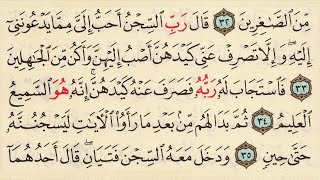 مِّنَ ٱلصَّٰغِرِينَ ٣٢ قَالَ رَبِّ ٱلسِّجْنُ أَحَبُّ إِلَىَّ مِمَّا يَدْعُونَنِىٓ
إِلَيْهِ ۖ وَإِلَّا تَصْرِفْ عَنِّى كَيْدَهُنَّ أَصْبُ إِلَيْهِنَّ وَأَكُن مِّنَ ٱلْجَٰهِلِينَ
٣٣ فَٱسْتَجَابَ لَهُۥ رَبُّهُۥ فَصَرَفَ عَنْهُ كَيْدَهُنَّ ۚ إِنَّهُۥ هُوَ ٱلسَّمِيعُ
ٱلْعَلِيمُ ٣٤ ثُمَّ بَدَا لَهُم مِّنۢ بَعْدِ مَا رَأَوُا۟ ٱلْـَٔايَٰتِ لَيَسْجُنُنَّهُۥ
حَتَّىٰ حِينٍ ٣٥ وَدَخَلَ مَعَهُ ٱلسِّجْنَ فَتَيَانِ ۖ قَالَ أَحَدُهُمَآ